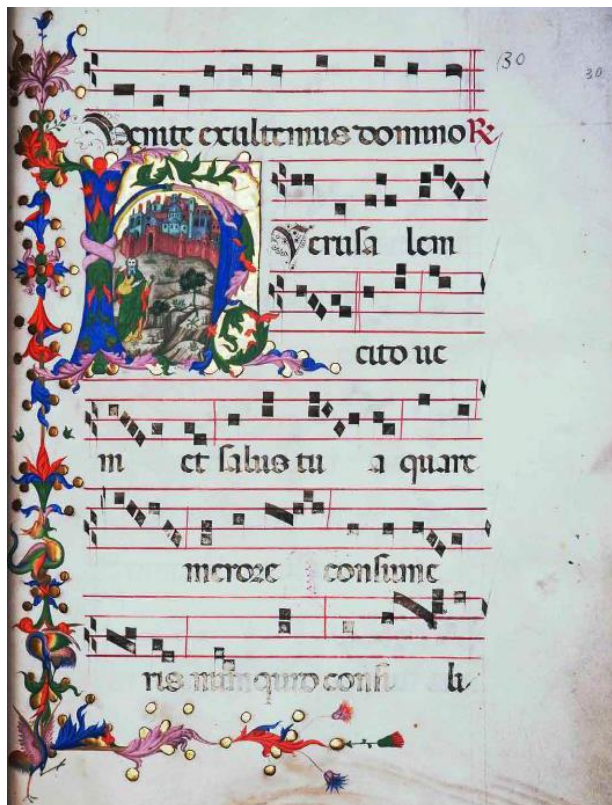 30 30
Venite exultemus domino R
Hyerusa lem
cito ue
ni et salus tu a quare
merore consume
ris num quid consi li